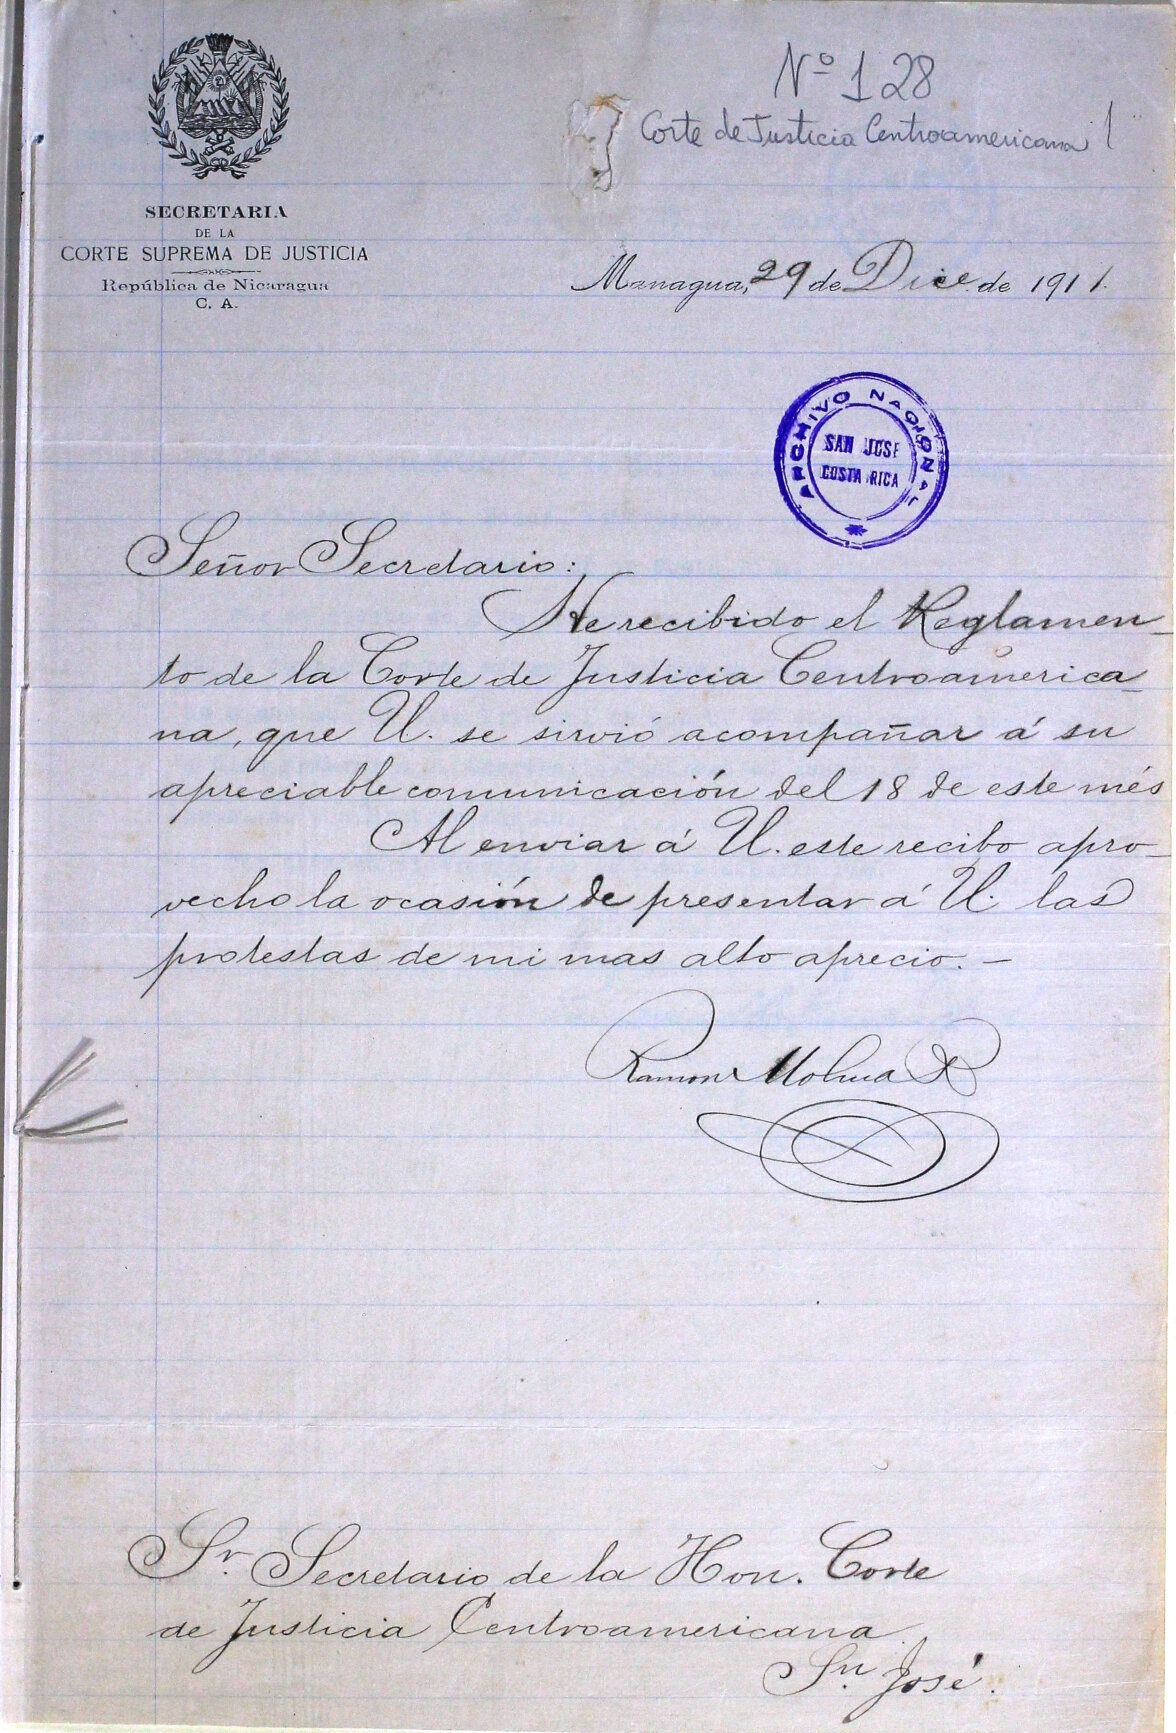 Nº 128
Corte de Justicia Centroamericana 1
SECRETARIA
DE LA
CORTE SUPREMA DE JUSTICIA
República de Nicaragua
C. A.
Managua, 29 de Dice. de 1911.
ARCHIVO NACIONAL
SAN JOSE
COSTA RICA
Señor Secretario:
He recibido el Reglamen-
to de la Corte de Justicia Centroamerica-
na, que U. se sirvió acompañar á su
apreciable comunicación del 18 de este més
Al enviar á U. este recibo apro-
vecho la ocasión de presentar á U. las
protestas de mi mas alto aprecio. -
Ramon Molina R
Sr. Secretario de la Hon. Corte
de Justicia Centroamericana.
Sn. José.